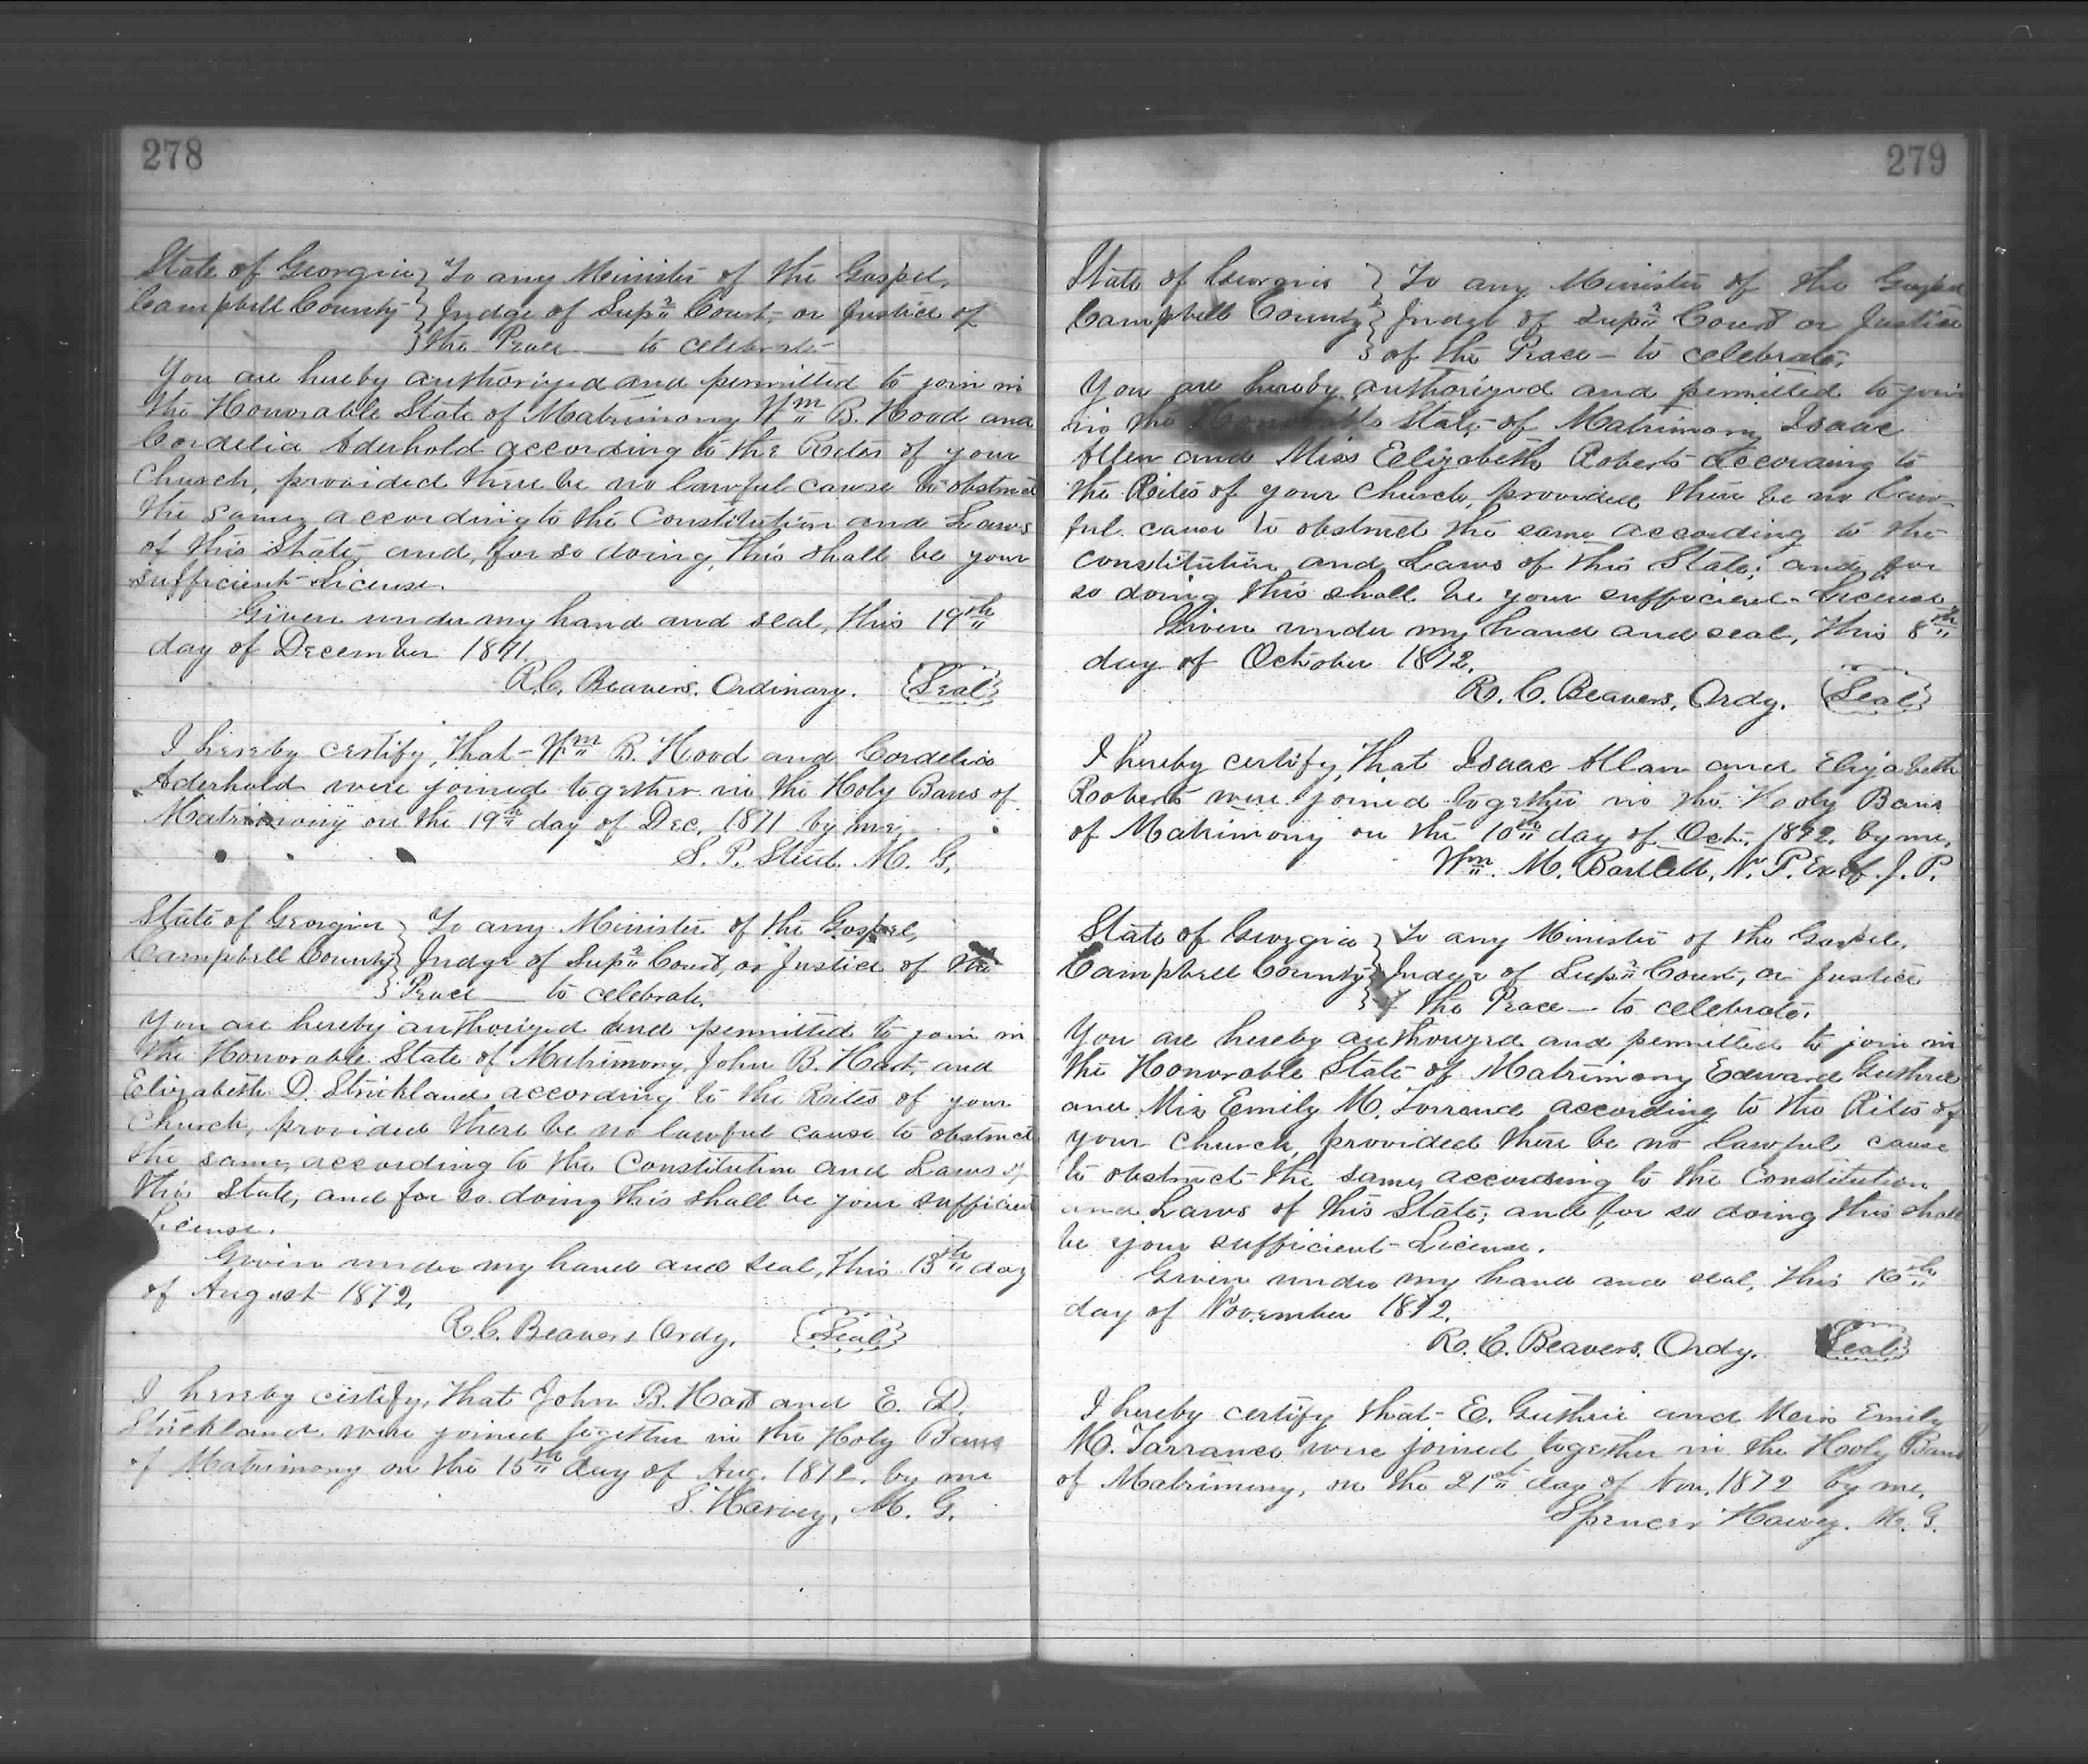 278
State of Georgia } To any Minister of the Gospel,
Campbell County } Judge of Supr Court, or Justice of
} the Peace — to celebrate
You are hereby authorized and permitted to join in
the Honorable State of Matrimony Wm B. Hood and
Cordelia Aderhold according to the Rites of your
Church, provided there be no lawful cause to obstruct
the same, according to the Constitution and Laws
of this State, and, for so doing, this shall be your
sufficient License.
Given under my hand and seal, this 19th
day of December 1871.
R.C. Beavers, Ordinary. {Seal}
I hereby certify, that Wm B. Hood and Cordelia
Aderhold were joined together in the Holy Bans of
Matrimony on the 19th day of Dec, 1871 by me,
S. P. Steed. M. G.
State of Georgia } To any Minister of the Gospel,
Campbell County } Judge of Supr Court, or Justice of the
} Peace — to celebrate,
You are hereby authorized and permitted to join in
the Honorable State of Matrimony, John B. Hart, and
Elizabeth D. Strickland according to the Rites of your
Church, provided there be no lawful cause to obstruct
the same, according to the Constitution and Laws of
this State, and for so doing this shall be your sufficient
License.
Given under my hand and seal, this 13th day
of August 1872.
R.C. Beavers Ordy. {Seal}
I hereby certify, that John B. Hart and E. D.
Strickland were joined together in the Holy Bans
of Matrimony on the 15th day of Aug. 1872. by me
S. Harvey, M. G.
279
State of Georgia } To any Minister of the Gospel
Campbell County } Judge of Supr Court or Justice
} of the Peace — to celebrate,
You are hereby authorized and permitted to join
in the Honorable State of Matrimony Isaac
Allen and Miss Elizabeth Roberts according to
the Rites of your Church, provided there be no law
ful cause to obstruct the same according to the
constitution and Laws of this State; and for
so doing this shall be your sufficient License
Given under my hand and seal, this 8th
day of October 1872.
R. C. Beavers, Ordy. {Seal}
I hereby certify, that Isaac Allan and Elizabeth
Roberts were joined together in the Holy Bans
of Matrimony on the 10th day of Oct. 1872. by me,
Wm. M. Bartlett, N. P. Ex of. J. P.
State of Georgia } To any Minister of the Gospel,
Campbell County } Judge of Supr Court, or Justice
} of the Peace — to celebrate,
You are hereby authorized and permitted to join in
the Honorable State of Matrimony Edward Guthrie
and Miss Emily M. Torrance according to the Rites of
your Church, provided there be no lawful cause
to obstruct the same, according to the Constitution
and Laws of this State; and for so doing this shall
be your sufficient License.
Given under my hand and seal, this 16th
day of November 1872.
R. C. Beavers, Ordy. {Seal}
I hereby certify that E. Guthrie and Miss Emily
M. Tarrance were joined together in the Holy Bans
of Matrimony, on the 21st day of Nov, 1872 by me,
Spencer Harvey. M. G.